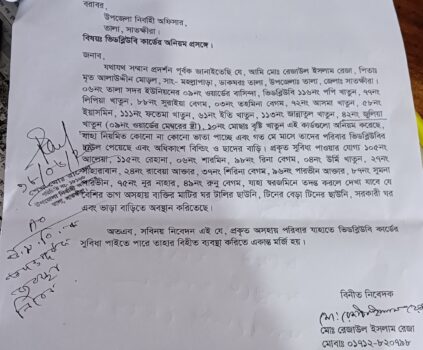 বরাবর,
উপজেলা নির্বাহী অফিসার,
তালা, সাতক্ষীরা।
বিষয়ঃ ভিডব্লিউবি কার্ডের অনিয়ম প্রসঙ্গে।
জনাব,
যথাযথ সম্মান প্রদর্শন পূর্বক জানাইতেছি যে, আমি মোঃ রেজাউল ইসলাম রেজা, পিতাঃ
মৃত আলাউদ্দীন মোড়ল, সাং- মহল্লাপাড়া, ডাকঘরঃ তালা, উপজেলাঃ তালা, জেলাঃ সাতক্ষীরা।
০৬নং তালা সদর ইউনিয়নের ০৯নং ওয়ার্ডের বাসিন্দা, ভিডব্লিউবি ১১৬নং পপি খাতুন, ৭৭নং
লিপিয়া খাতুন, ৮৮নং সুরাইয়া বেগম, ০৩নং তহমিনা বেগম, ৭২নং আসমা খাতুন, ৫৮নং
ইয়াসমিন, ১১১নং ফতেমা খাতুন, ৬১নং ইতি খাতুন, ১১৩নং জান্নাতুল খাতুন, ৪২নং জুলিয়া
খাতুন (০৯নং ওয়ার্ডের মেম্বরের স্ত্রী), ১০নং মোছাঃ বৃষ্টি খাতুন এই কার্ডগুলো অনিয়ম করেছে,
যাহা নিয়মিত কোনো না কোনো ভাতা পাচ্ছে এবং গত মে মাসে তাদের পরিবার ভিডব্লিউবির
চাউল পেয়েছে এবং অধিকাংশ বিল্ডিং ও ছাদের বাড়ি। প্রকৃত সুবিধা পাওয়ার যোগ্য ১০৫নং
আলেয়া, ১১৫নং রেহানা, ০৬নং শারমিন, ৯৮নং রিনা বেগম, ০৪নং উর্মি খাতুন, ২৭নং
২৪নং রাবেয়া আক্তার, ৩৭নং শিরিনা বেগম, ৯৬নং পারভীন আক্তার, ৮৭নং সুমনা
পারভীন, ৭৫নং নুর নাহার, ৪৯নং রুনু বেগম, যাহা স্বরজমিনে তদন্ত করলে দেখা যাবে যে
বেশির ভাগ অসহায় ব্যক্তির মাটির ঘর টালির ছাউনি, টিনের বেড়া টিনের ছাউনি, সরকারী ঘর
এবং ভাড়া বাড়িতে অবস্থান করিতেছে।
অতএব, সবিনয় নিবেদন এই যে, প্রকৃত অসহায় পরিবার যাহাতে ভিডব্লিউবি কার্ডের
সুবিধা পাইতে পারে তাহার বিহীত ব্যবস্থা করিতে একান্ত মর্জি হয়।
বিনীত নিবেদক
মোঃ রেজাউল ইসলাম রেজা
মোবাঃ ০১৭১২-৮২০৭৯৮